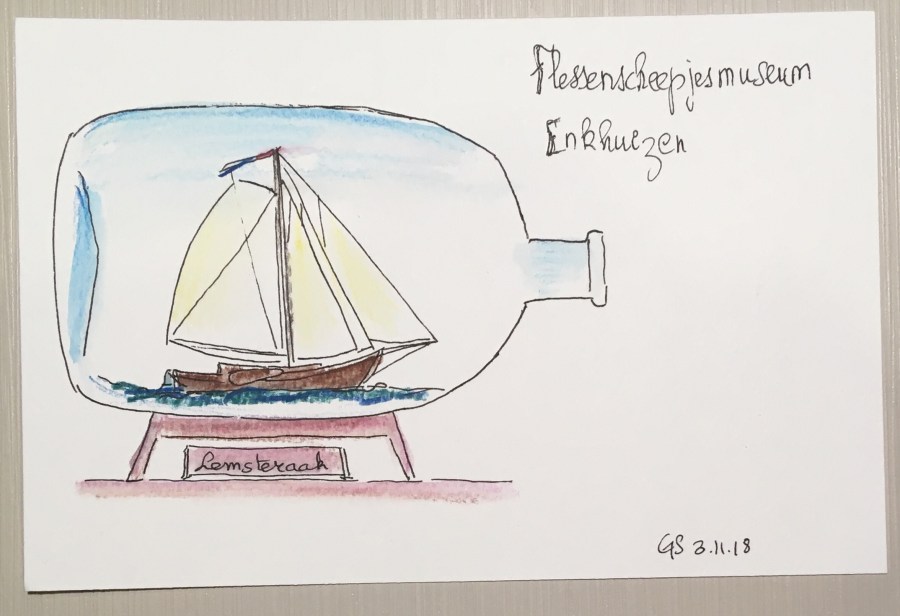 Flessenscheepjesmuseum
Enkhuizen
Lemsteraak
GS 3.11.18